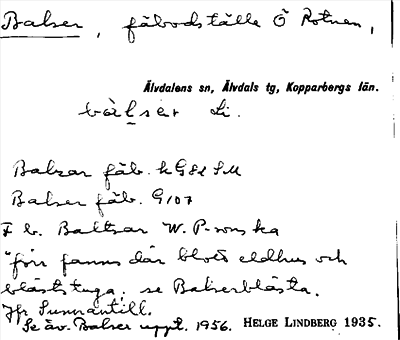 Balser, fäbodställe Ö Rotnen,
Älvdalens sn, Älvdals tg, Kopparbergs län.
bàlsär Li.
Balzar fäb. k G82 SM
Balser fäb. G107
F b. Baltsar W. P-sonska
"förr fanns där blott eldhus och
bläststuga; se Balserblästa.
Jfr Sunnantill.
Se äv. Balser uppt. 1956. HELGE LINDBERG 1935.